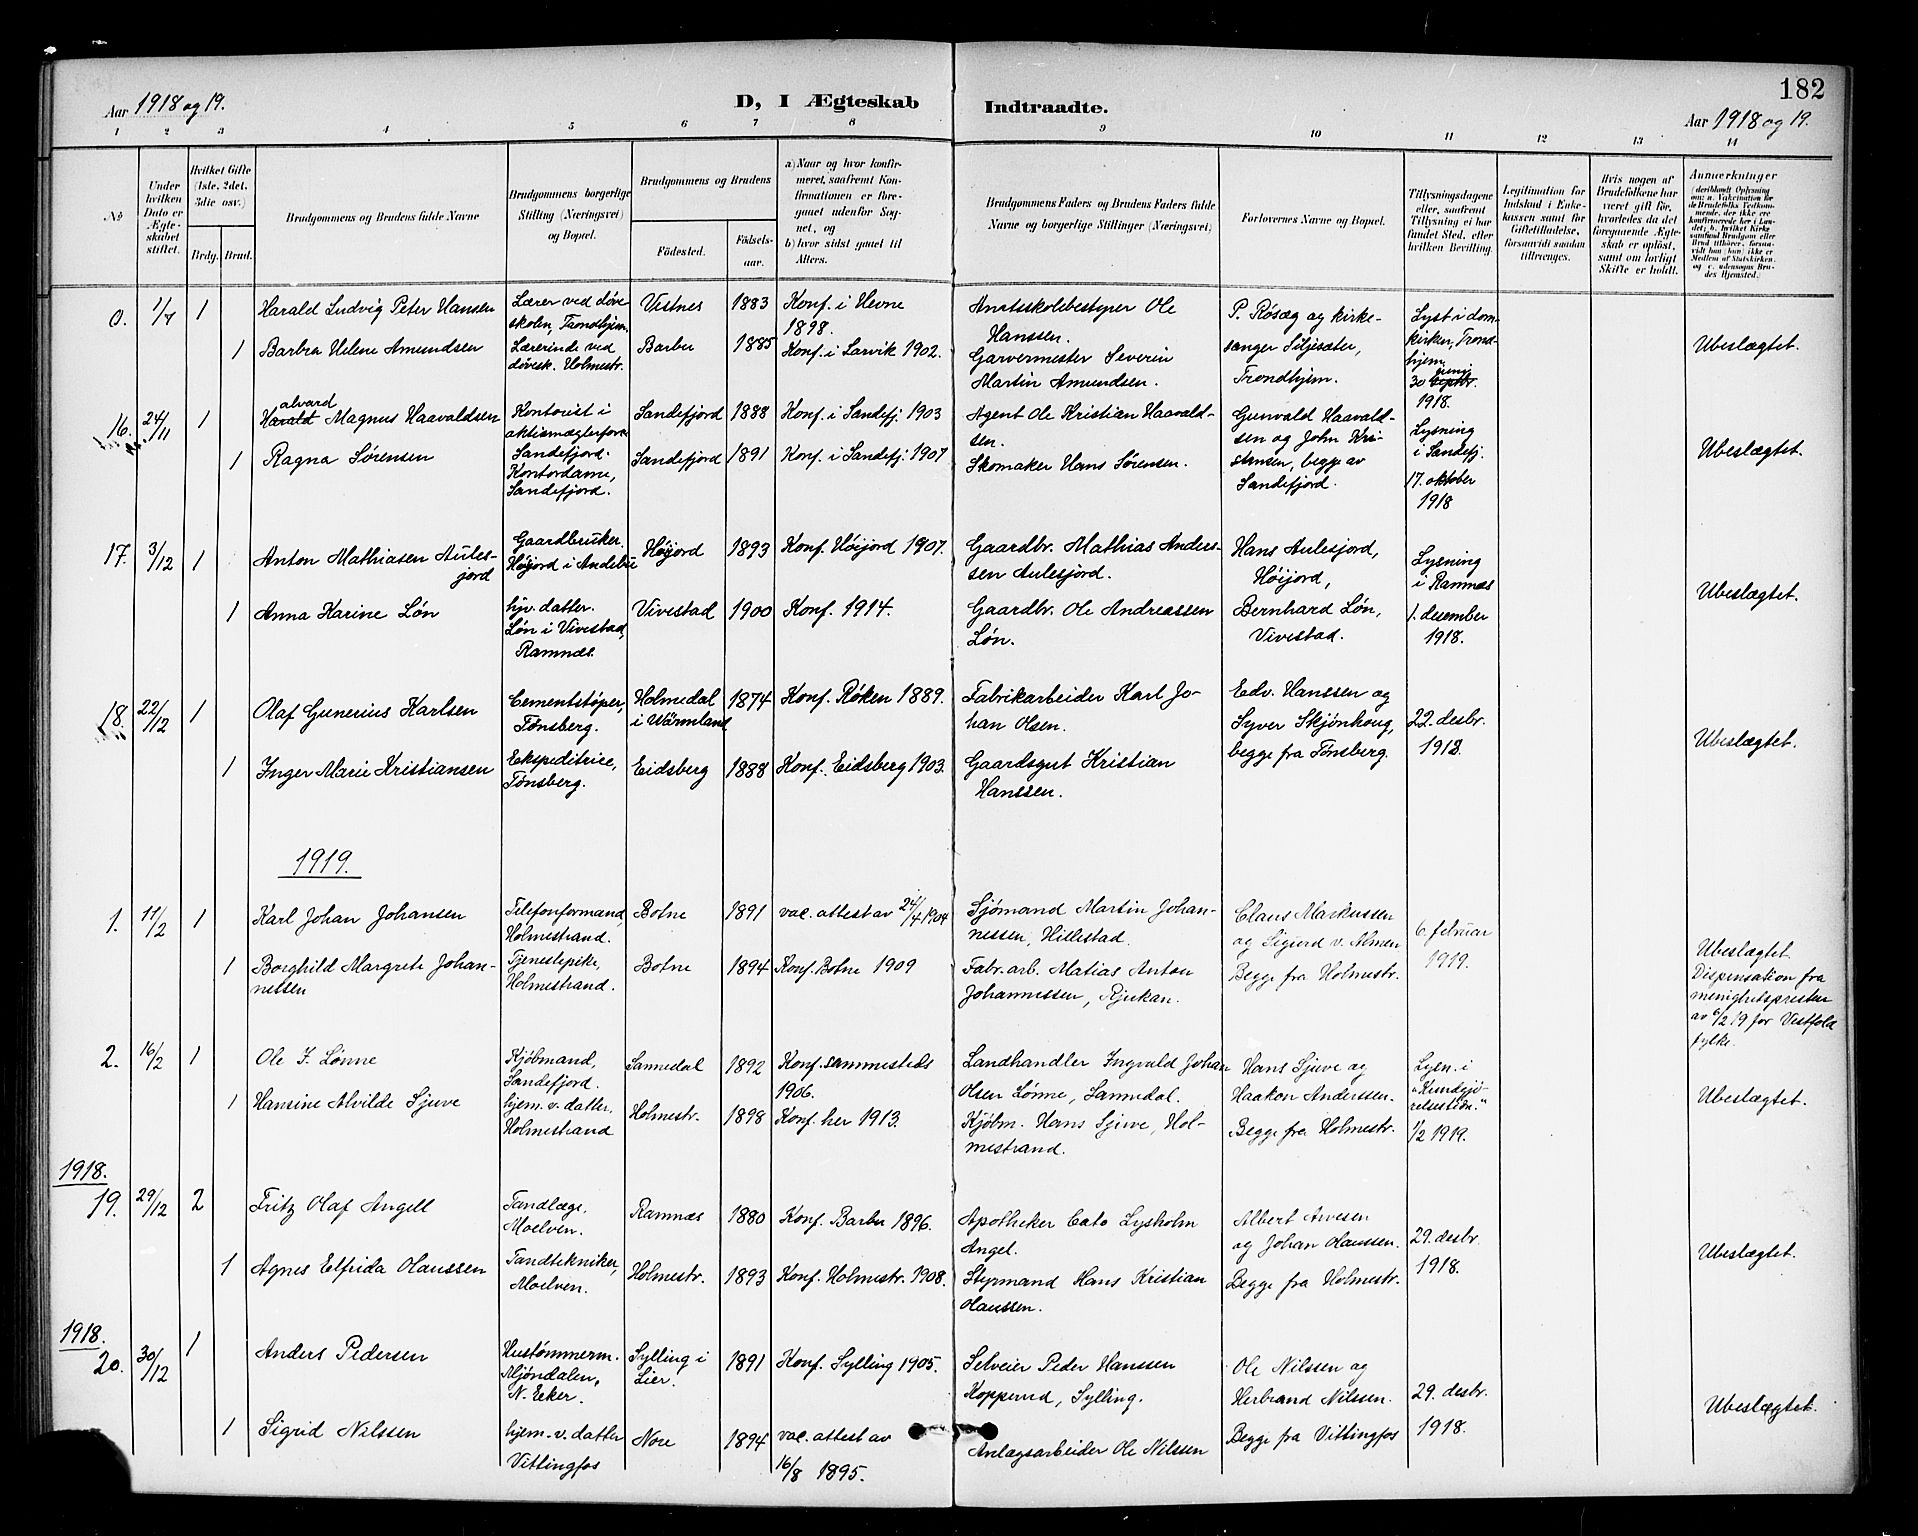 182
Aar 1918 og 19.
D, I Ægteskab
Indtraadte.
Aar 1918 og 19.
1 2 3 4 5 6 7 8 9 10 11 12 13 14
No
Under hvilken Dato er Ægteskabet stiftet.
Hvilket Gifte (1ste, 2det, 3die osv.)
Brdg. Brud.
Brudgommens og Brudens fulde Navne
Brudgommens borgerlige Stilling (Næringsvei) og Bopæl.
Brudgommens og Brudens
Fødested.
Fødselsaar.
a) Naar og hvor konfirmeret, saafremt Konfirmationen er foregaaet udenfor Sognet, og
b) hvor sidst gaaet til Alters.
Brudgommens Faders og Brudens Faders fulde Navne og borgerlige Stillinger (Næringsvei)
Forlovernes Navne og Bopæl.
Tillysningsdagene eller, saafremt Tillysning ei har fundet Sted, efter hvilken Bevilling.
Legitimation for Indskud i Enkekassen samt for Giftetilladelse, forsaavidt saadan tiltrænges.
Hvis nogen af Brudefolkene har været gift før, hvorledes da det foregaaende Ægteskab er opløst, samt om lovligt Skifte er holdt.
Anmærkninger
(deriblandt Oplysning om: a. Vakcination for de Brudefolks Vedkommende, der ikke ere konfirmerede her i Landet; b. hvilket Kirkesamfund Brudgom eller Brud tilhører, forsaavidt han (hun) ikke er Medlem af Statskirken, og c. udensogns Brudes Hjemsted.
0. 1/7 1
Harald Ludvig Peter Hansen
Lærer ved døveskolen, Trondhjem.
Vestnes 1883
Konf. i Hevne 1898.
Amtsskolebestyrer Ole Hanssen.
P. Røsæg og kirkesanger Siljesæter, Trondhjem.
Lyst i domkirken, Trondhjem, 30 septbr. juni 1918.
1
Barbra Helene Amundsen
Lærerinde ved døvesk. Holmestr.
Barbu 1885
Konf. i Larvik 1902.
Garvermester Severin Martin Amundsen.
Ubeslægtet.
16. 24/11 1
Harald alvard Magnus Haavaldsen
Kontorist i aktiemæglerforr. Sandefjord.
Sandefjord 1888
Konf. i Sandefj. 1903
Agent Ole Kristian Haavaldsen.
Gunvald Haavaldsen og John Kristansen, begge av Sandefjord.
Lysning i Sandefj. 17. oktober 1918
1
Ragna Sørensen
Kontordame, Sandefjord.
Sandefjord 1891
Konf. i Sandefj. 1907
Skomaker Hans Sørensen.
Ubeslægtet.
17. 3/12 1
Anton Mathiasen Aulesjord
Gaardbruker. Høijord i Andebu
Høijord 1893
Konf. Høijord 1907.
Gaardbr. Mathias Anderssen Aulesjord.
Hans Aulesjord, Høijord,
Lysning i Ramnæs 1. desember 1918.
1
Anna Karine Løn
hjv. datter. Løn i Vivestad, Ramnæs.
Vivestad 1900
Konf. 1914.
Gaardbr. Ole Andreassen Løn.
Bernhard Løn, Vivestad.
Ubeslægtet.
18. 22/12 1
Olaf Gunerius Karlsen
Cementstøper, Tønsberg.
Holmedal i Wärmland 1874
Konf. Røken 1889.
Fabrikarbeider Karl Johan Olsen.
Edv. Hanssen og Syver Skjønhoug, begge fra Tønsberg.
22. desbr. 1918.
1
Inger Marie Kristiansen
Ekspeditrice, Tønsberg.
Eidsberg 1888
Konf. Eidsberg 1903.
Gaardsgut Kristian Hanssen.
Ubeslægtet.
1919.
1. 11/2 1
Karl Johan Johansen
Telefonformand, Holmestrand.
Botne 1891
vac. attest av 24/4 1904
Sjømand Martin Johannessen, Hillestad.
Claus Markussen og Sigurd v. Almen Begge fra Holmestr.
6. februar 1919.
1
Borghild Margrete Johannessen
Tjenestepike, Holmestrand.
Botne 1894
Konf. Botne 1909
Fabr. arb. Matias Anton Johannessen, Rjukan.
Ubeslægtet. Dispensation fra menighetspresten av 6/2 19 for Vestfold fylke.
2. 16/2 1
Ole J. Lønne
Kjøbmand, Sandefjord.
Sannedal 1892
Konf. sammesteds 1906.
Landhandler Ingvald Johan Olsen Lønne, Sannedal.
Hans Sjuve og Haakon Anderssen. Begge fra Holmestr.
Lysn. i "Kundgjørelsestid." 1/2 1919.
1
Hansine Alvilde Sjuve
hjem. v. datter. Holmestrand
Holmestr. 1898
Konf. her 1913.
Kjøbm. Hans Sjuve, Holmestrand.
Ubeslægtet.
1918.
19. 29/12 2
Fritz Olaf Angell
Tandlæge, Moelven.
Ramnæs 1880
Konf. Barbu 1896.
Apotheker Cato Lysholm Angel.
Albert Arvesen og Johan Olaussen. Begge fra Holmestr.
29. desbr. 1918.
1
Agnes Elfrida Olaussen
Tandtekniker, Moelven.
Holmestr. 1893
Konf. Holmestr. 1908.
Styrmand Hans Kristian Olaussen.
Ubeslægtet.
1918.
20. 30/12 1
Anders Pedersen
Hustømmerm. Mjøndalen, N. Eeker.
Sylling i Lier. 1891
Konf. Sylling 1905.
Selveier Peder Hanssen Kopperud, Sylling.
Ole Nilssen og Herbrand Nilssen. Begge fra Vittingfos
29. desbr. 1918.
1
Sigrid Nilssen
hjem. v. datter Vittingfos
Nore 1894
vac. attest av 16/8 1895.
Anlægsarbeider Ole Nilssen
Ubeslægtet.